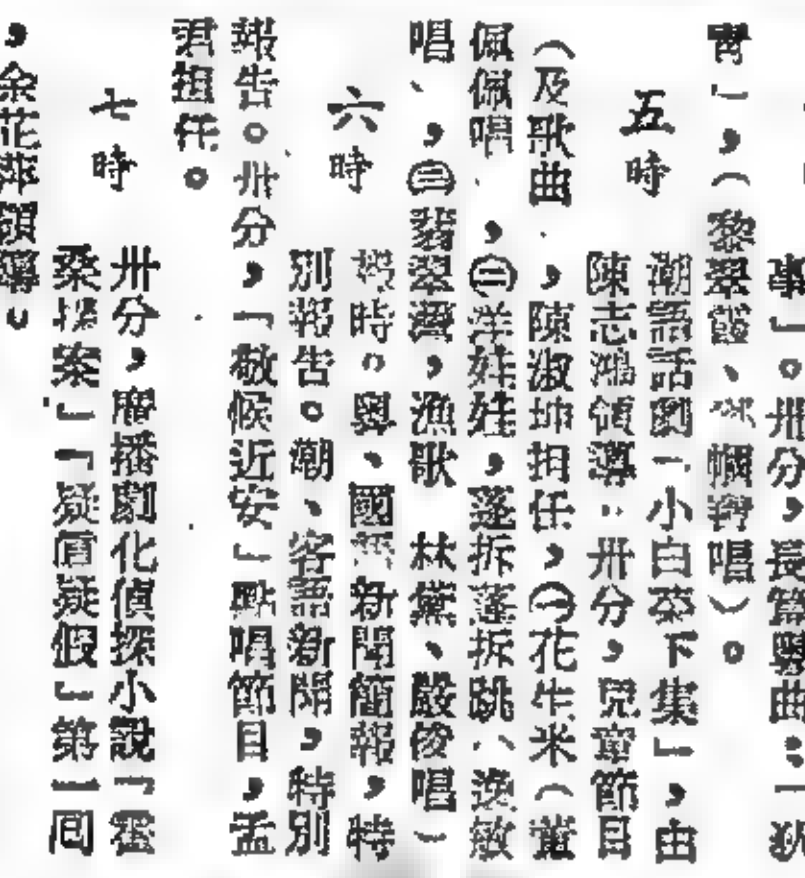 事」。卅分，長篇粵曲：「猶
青」，（黎翠霞、幗唱）。
五時
潮語話劇「小白菜下集」，由
陳志鴻領導。卅分，兒童節目
（及歌曲，陳淑坤担任，㊀花生米（董
佩佩唱），㊁洋娃娃，蓬拆蓬拆跳（逸敏
唱），㊂翡翠灣，漁歌（林黛、嚴俊唱）
六時
報時。粵、國語新聞簡報，特
別報告。潮、客語新聞，特別
報告。卅分，「敬候近安」點唱節目，孟
君担任。
七時
卅分，廣播劇化偵探小說「霍
桑探案」「疑眞疑假」第一回
，余花萍領導。